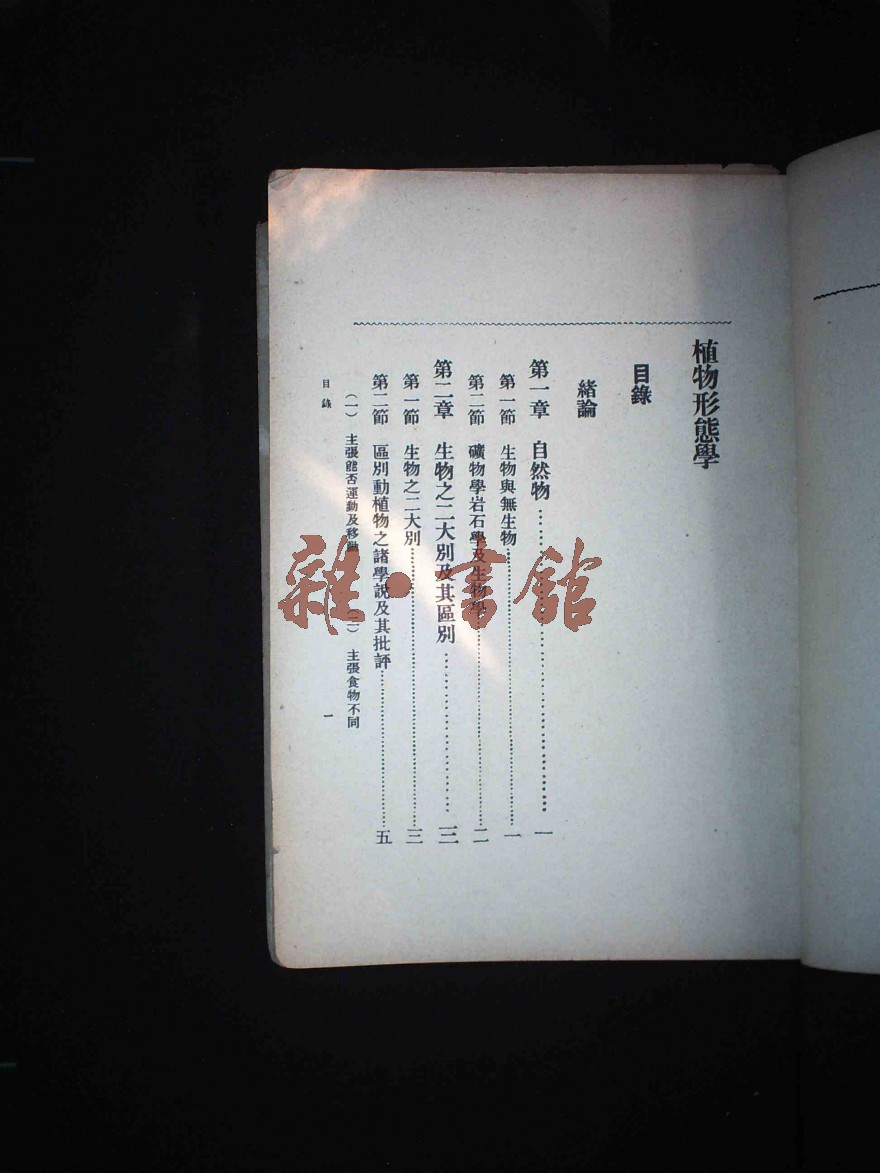 植物形態學
目錄
緒論
第一章 自然物……一
第一節 生物與無生物……一
第二節 礦物學岩石學及生物學……二
第二章 生物之二大別及其區別……三
第一節 生物之二大別……三
第二節 區別動植物之諸學說及其批評……五
(一) 主張能否運動及移動 (二) 主張食物不同
目錄 一
雜·書館